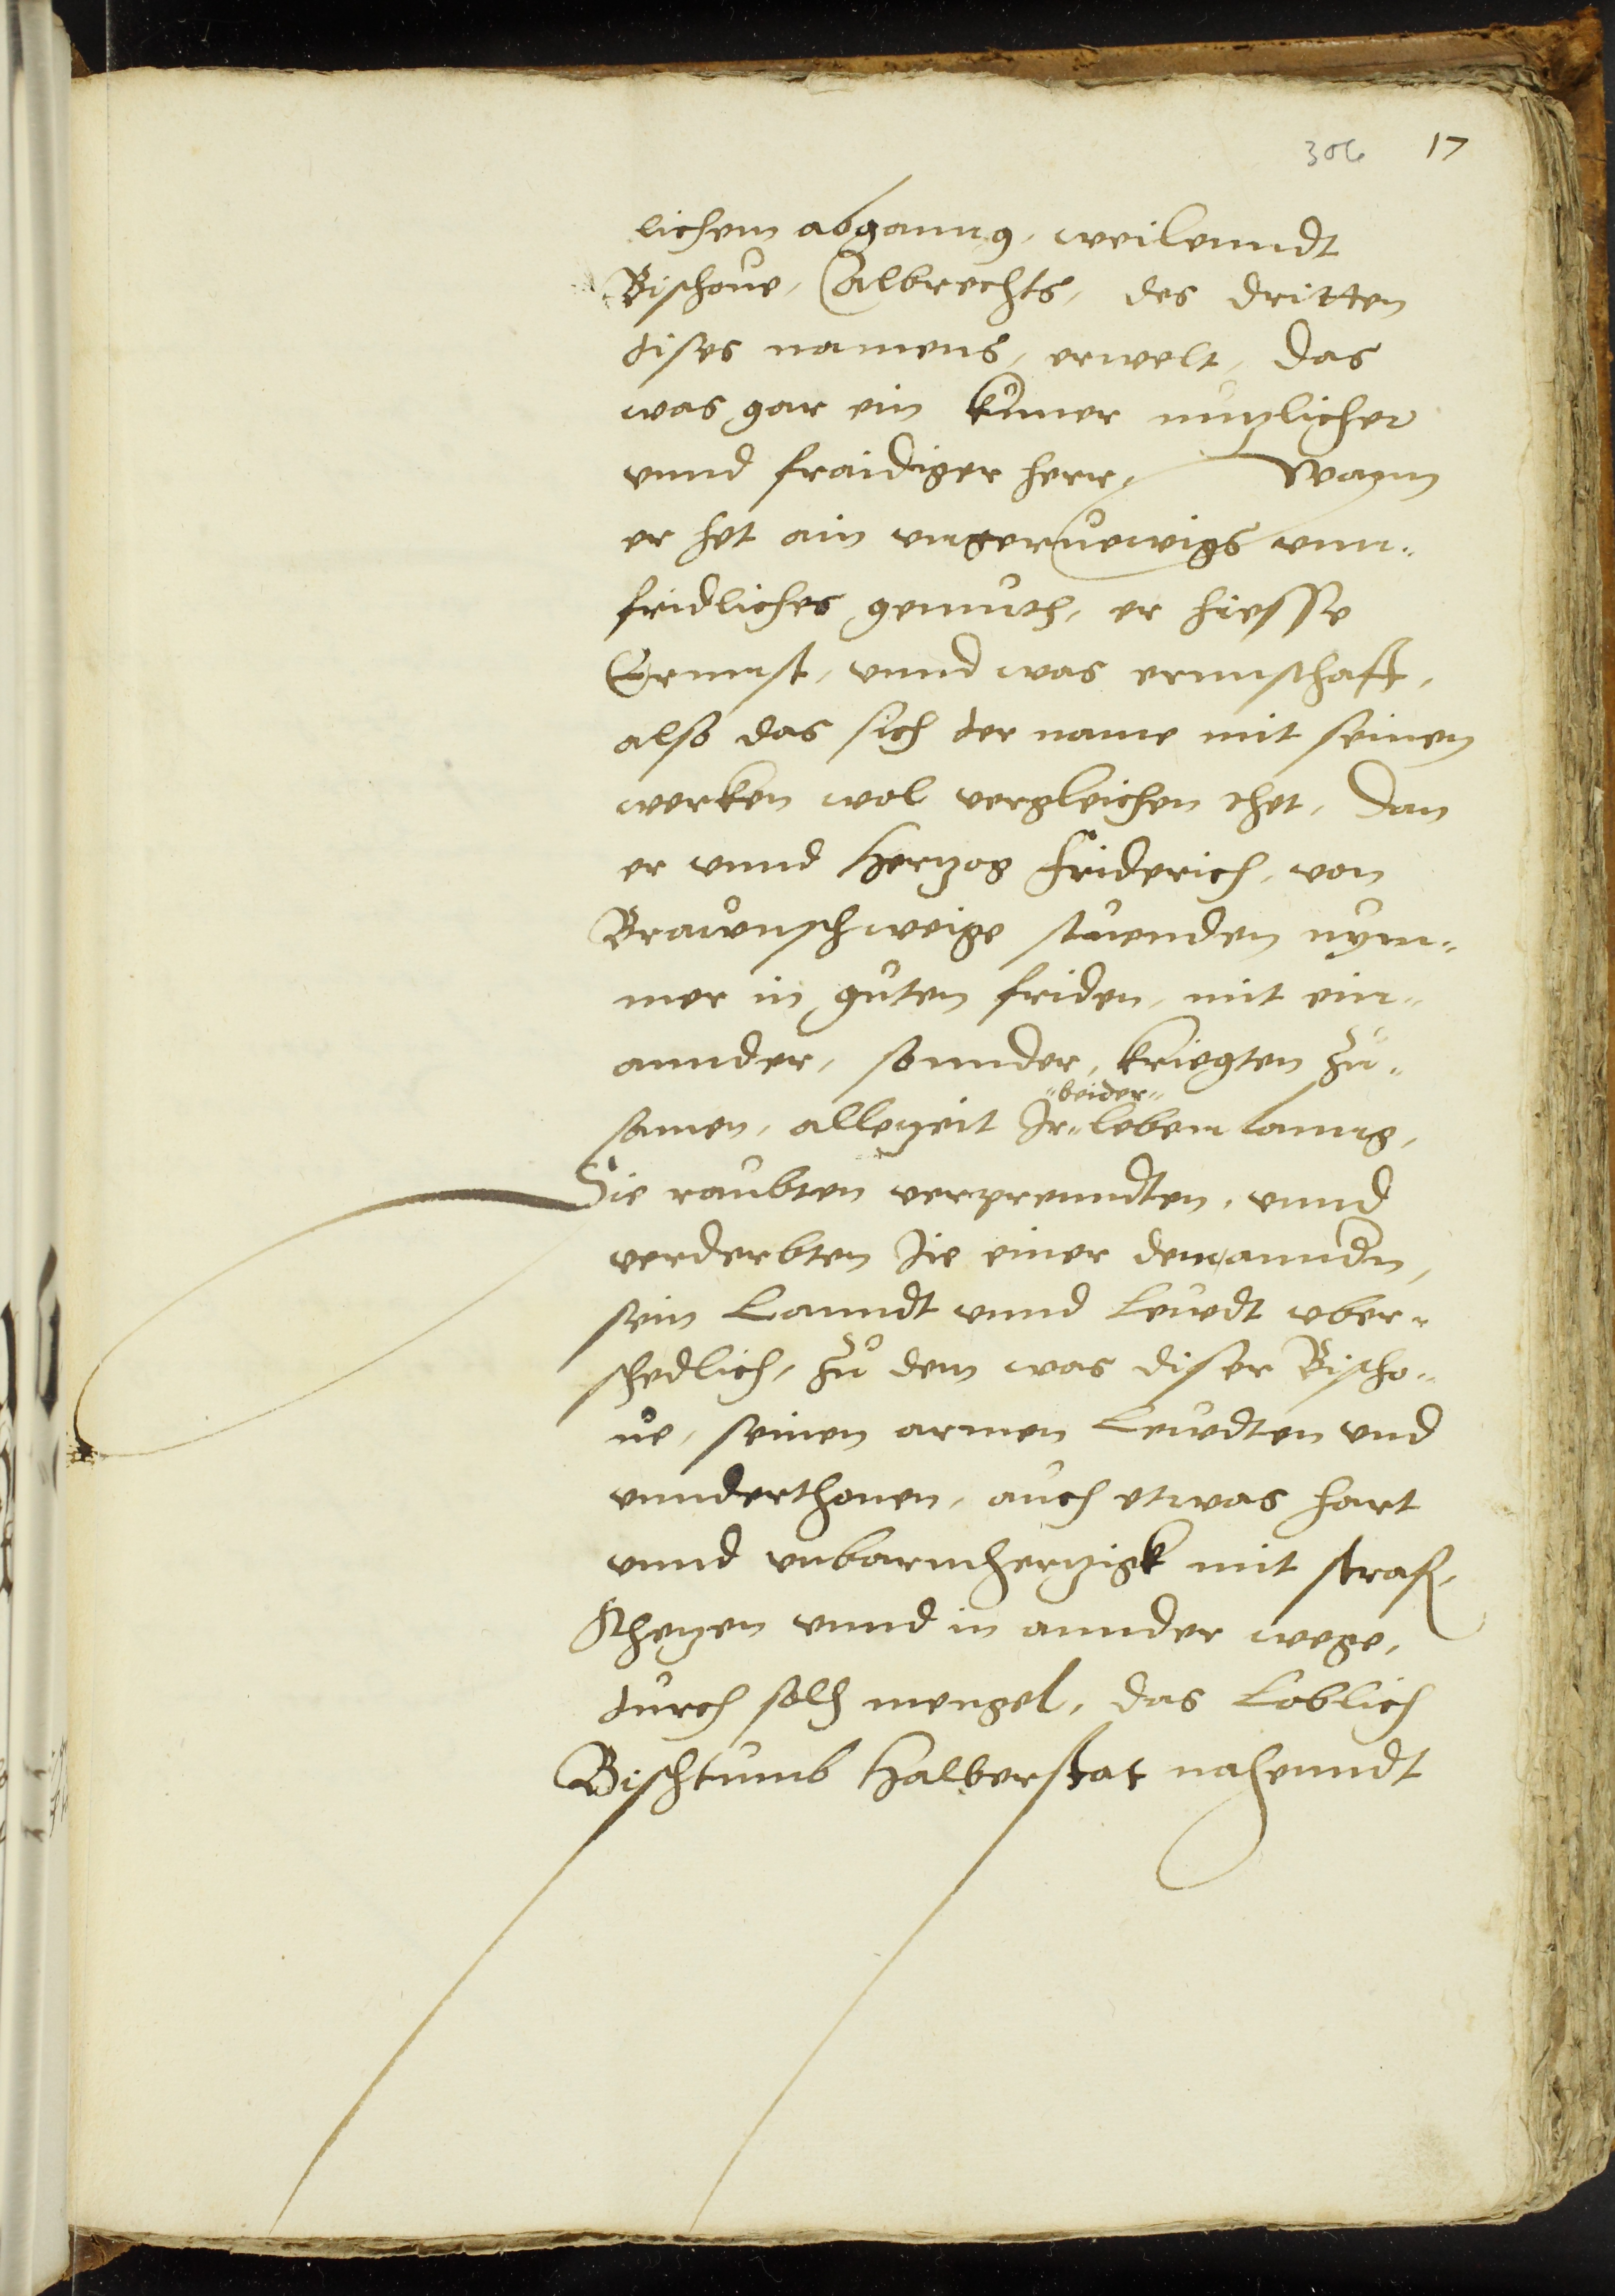 306 17
lichem abganng, weilenndt
Bischoue, Albrechts, des dritten
dises namens, erwelt, das
was gar ein kuner nutzlicher
vnnd fraidiger herr, Wann
er het ain vngeruewigs vnn-
fridliches gemueth, er hiesse
Ernnst, vnnd was ernnsthafft,
also das sich der name mit seinen
werken wol vergleichen thet, dan
er vnnd Hertzog Friderich, von
Brawnschweige stuenden nym-
mer in guten friden, mit ein-
annder, sonnder, kriegten zu-
"beider"
samen, allezeit Ir leben lanng,
Sie raubten verprenndten, vnnd
verderbten Ie einer dem anndern,
sein Lanndt vnnd Lewdt vber-
schedlich, zu dem was diser Bischo-
ue, seinen armen Lewdten vnd
vnnderthonen, auch etwas hart
vnnd vnbarmhertzigk mit straf,
schetzen vnnd in annder wege,
durch solh mengel, das Loblich
Bischtumb Halberstat nahenndt